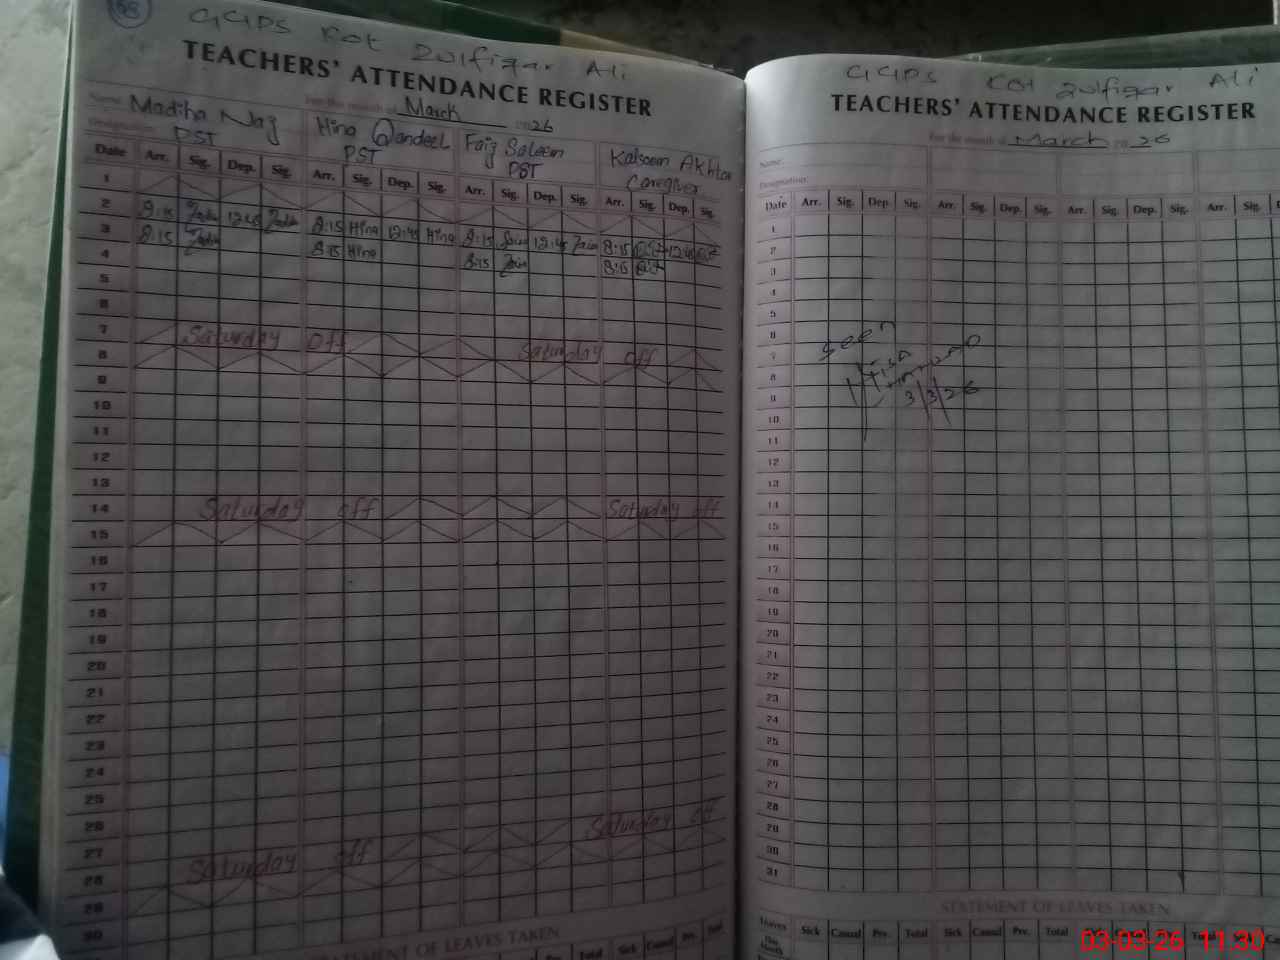 68
GGPS Kot Zulfiqar Ali
TEACHERS' ATTENDANCE REGISTER
For the month of March 2026
Name: Madiha Naz Hina Qandeel Faiz Saleem Kalsoom Akhtar
Designation: PST PST PST Caregiver
Date Arr. Sig. Dep. Sig. Arr. Sig. Dep. Sig. Arr. Sig. Dep. Sig. Arr. Sig. Dep. Sig.
1
2 8:15 12:45 8:15 Hina 12:45 Hina 8:15 12:45 8:15 12:45
3 8:15 8:15 Hina 8:15 8:15
4
5
6
7 Saturday Off Saturday off
8
9
10
11
12
13
14 Saturday off Saturday off
15
16
17
18
19
20
21
22
23
24
25
26
27
28 Saturday off Saturday off
29
30
STATEMENT OF LEAVES TAKEN
Total Sick Casual Prv. Total
GGPS Kot Zulfiqar Ali
TEACHERS' ATTENDANCE REGISTER
For the month of March 2026
Name:
Designation:
Date Arr. Sig. Dep. Sig. Arr. Sig. Dep. Sig. Arr. Sig. Dep. Sig. Arr. Sig.
1
2
3
4
5
6
7
8
9
10
11
12
13
14
15
16
17
18
19
20
21
22
23
24
25
26
27
28
29
30
31
Seen
3/3/26
STATEMENT OF LEAVES TAKEN
Leaves Sick Casual Prv. Total Sick Casual Prv. Total Sick Casual Prv. Total Sick
This Month
03-03-26 11:30